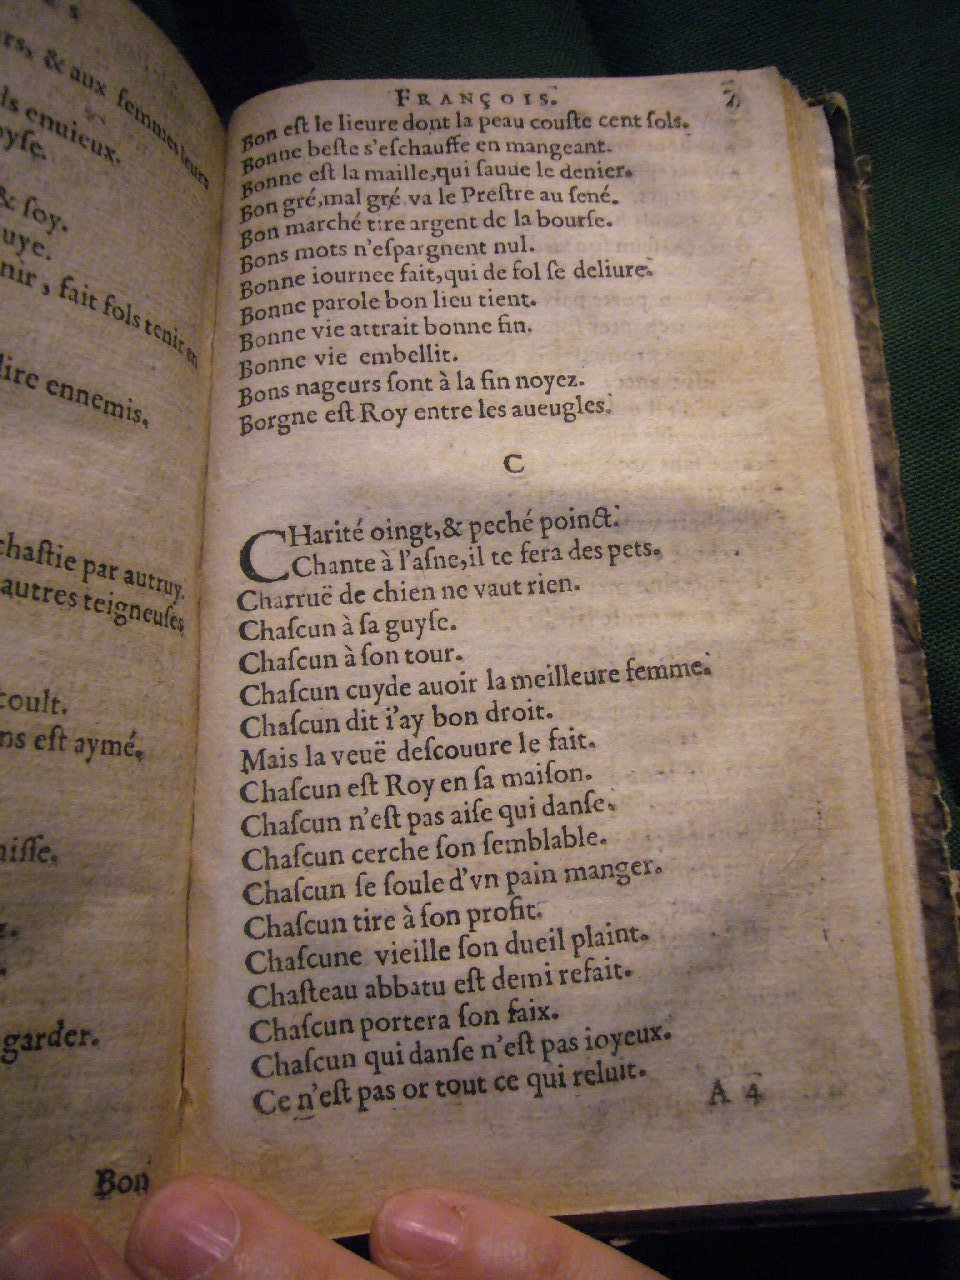 ers, & aux femmes leurs
ls enuieux.
oyſe.
& ſoy.
uye.
nir, fait fols tenir en
dire ennemis.
chaſtie par autruy.
autres teigneuſes
coult.
ns eſt aymé.
niſſe.
garder.
Bon
FRANÇOIS. 7
Bon eſt le lieure dont la peau couſte cent ſols.
Bonne beſte s'eſchauffe en mangeant.
Bonne eſt la maille, qui ſauue le denier.
Bon gré, mal gré va le Preſtre au ſené.
Bon marché tire argent de la bourſe.
Bons mots n'eſpargnent nul.
Bonne iournee fait, qui de fol ſe deliure.
Bonne parole bon lieu tient.
Bonne vie attrait bonne fin.
Bonne vie embellit.
Bons nageurs ſont à la fin noyez.
Borgne eſt Roy entre les aueugles.
C
CHarité oingt, & peché poinct.
Chante à l'aſne, il te fera des pets.
Charruë de chien ne vaut rien.
Chaſcun à ſa guyſe.
Chaſcun à ſon tour.
Chaſcun cuyde auoir la meilleure femme.
Chaſcun dit i'ay bon droit.
Mais la veuë deſcouure le fait.
Chaſcun eſt Roy en ſa maiſon.
Chaſcun n'eſt pas aiſe qui danſe.
Chaſcun cerche ſon ſemblable.
Chaſcun ſe ſoule d'vn pain manger.
Chaſcun tire à ſon profit.
Chaſcune vieille ſon dueil plaint.
Chaſteau abbatu eſt demi refait.
Chaſcun portera ſon faix.
Chaſcun qui danſe n'eſt pas ioyeux.
Ce n'eſt pas or tout ce qui reluit.
A 4